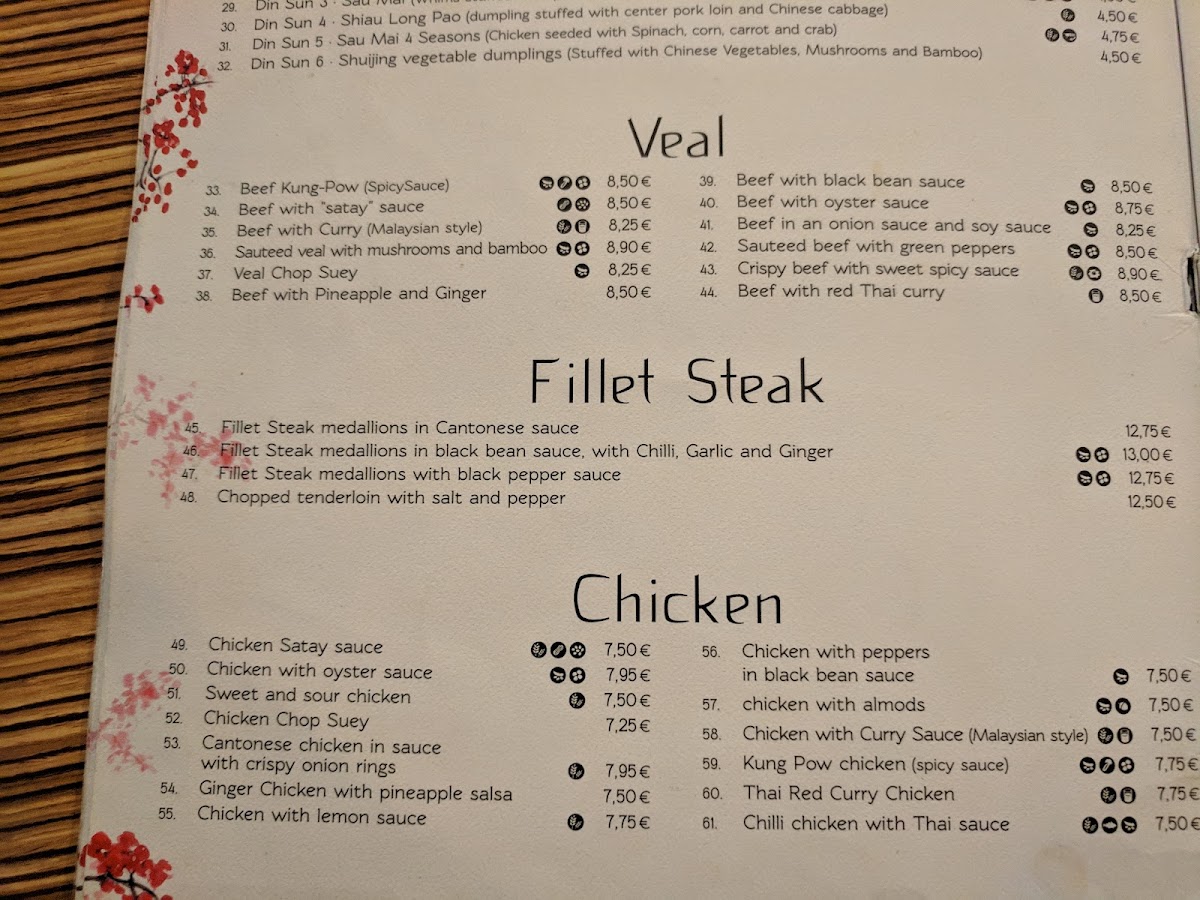 29. Din Sun 3 · Sau Mai
30. Din Sun 4 · Shiau Long Pao (dumpling stuffed with center pork loin and Chinese cabbage) 4,50 €
31. Din Sun 5 · Sau Mai 4 Seasons (Chicken seeded with Spinach, corn, carrot and crab) 4,75 €
32. Din Sun 6 · Shuijing vegetable dumplings (Stuffed with Chinese Vegetables, Mushrooms and Bamboo) 4,50 €
Veal
33. Beef Kung-Pow (SpicySauce) 8,50 €
34. Beef with "satay" sauce 8,50 €
35. Beef with Curry (Malaysian style) 8,25 €
36. Sauteed veal with mushrooms and bamboo 8,90 €
37. Veal Chop Suey 8,25 €
38. Beef with Pineapple and Ginger 8,50 €
39. Beef with black bean sauce 8,50 €
40. Beef with oyster sauce 8,75 €
41. Beef in an onion sauce and soy sauce 8,25 €
42. Sauteed beef with green peppers 8,50 €
43. Crispy beef with sweet spicy sauce 8,90 €
44. Beef with red Thai curry 8,50 €
Fillet Steak
45. Fillet Steak medallions in Cantonese sauce 12,75 €
46. Fillet Steak medallions in black bean sauce, with Chilli, Garlic and Ginger 13,00 €
47. Fillet Steak medallions with black pepper sauce 12,75 €
48. Chopped tenderloin with salt and pepper 12,50 €
Chicken
49. Chicken Satay sauce 7,50 €
50. Chicken with oyster sauce 7,95 €
51. Sweet and sour chicken 7,50 €
52. Chicken Chop Suey 7,25 €
53. Cantonese chicken in sauce
with crispy onion rings 7,95 €
54. Ginger Chicken with pineapple salsa 7,50 €
55. Chicken with lemon sauce 7,75 €
56. Chicken with peppers
in black bean sauce 7,50 €
57. chicken with almods 7,50 €
58. Chicken with Curry Sauce (Malaysian style) 7,50 €
59. Kung Pow chicken (spicy sauce) 7,75 €
60. Thai Red Curry Chicken 7,75 €
61. Chilli chicken with Thai sauce 7,50 €